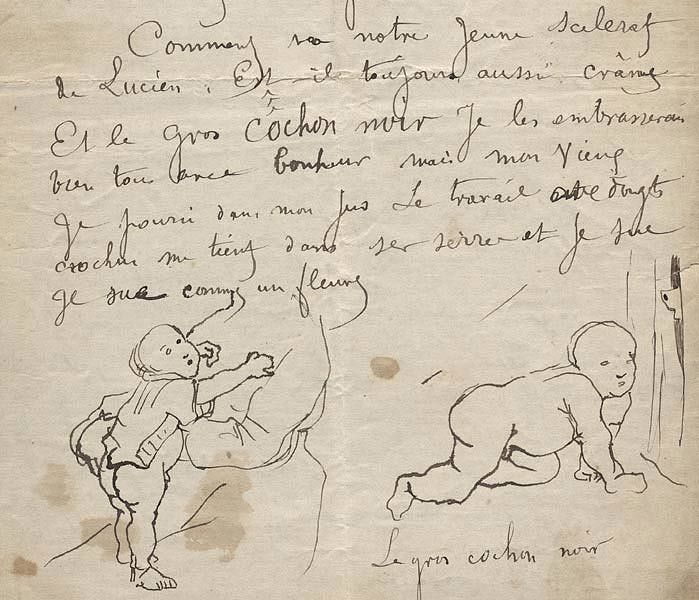 Comment va notre Jeune scelerat
de Lucien. Est-il toujours aussi crâne
Et le gros côchon noir Je les embrasserais
bien tous avec bonheur mais mon Vieux
Je pourri dans mon jus Le travail aux doigts
crochu me tient dans ser serre et Je sue
Je sue comme un fleuve
Le gros cochon noir